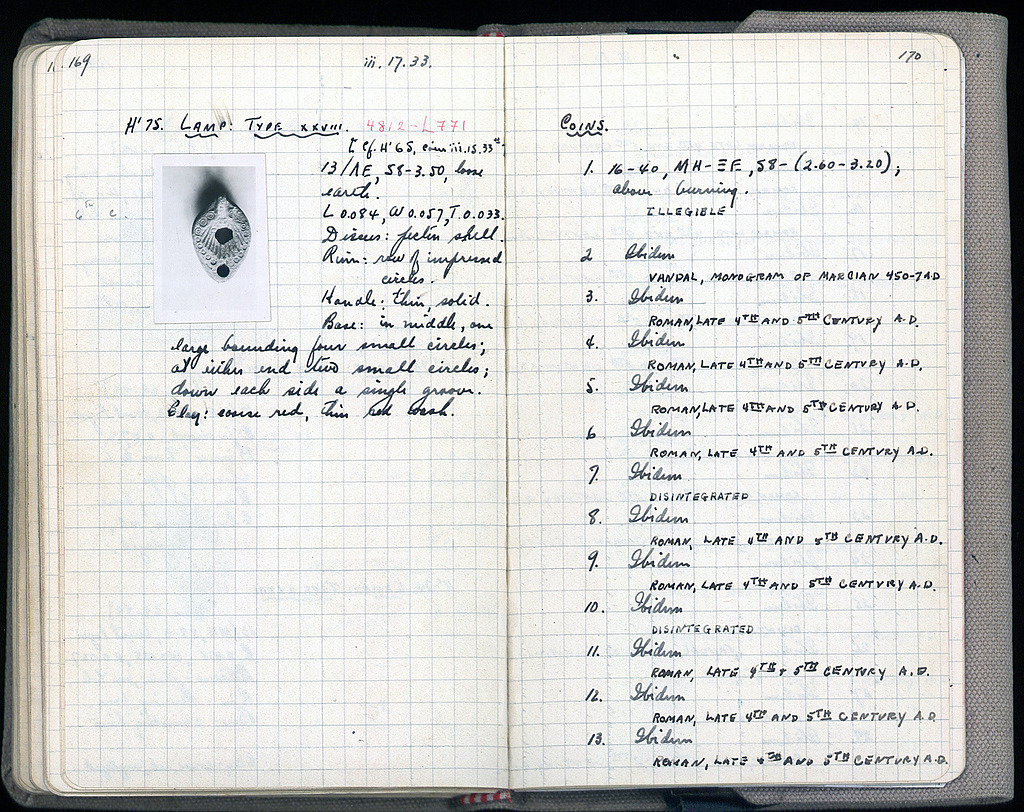 169
iii. 17. 33.
H' 75. LAMP: TYPE XXVIII. 4812-L771
Cf. H' 65, iii.15.33
13/ΛE, 58-3.50, loose
earth.
L 0.084, W 0.057, T 0.033.
6th c.
Discus: pecten shell.
Rim: row of impressed
circles.
Handle: thin, solid.
Base: in middle, one
large bounding four small circles;
at either end two small circles;
down each side a single groove.
Clay: coarse red, thin red wash.
170
COINS.
1. 16-40, MH-ΞE, 58-(2.60-3.20);
above burning.
ILLEGIBLE
2 Ibidem
VANDAL, MONOGRAM OF MARCIAN 450-7 A.D
3. Ibidem
ROMAN, LATE 4TH AND 5TH CENTURY A.D.
4. Ibidem
ROMAN, LATE 4TH AND 5TH CENTURY A.D.
5. Ibidem
ROMAN, LATE 4TH AND 5TH CENTURY A.D.
6 Ibidem
ROMAN, LATE 4TH AND 5TH CENTURY A.D.
7. Ibidem
DISINTEGRATED
8. Ibidem
ROMAN, LATE 4TH AND 5TH CENTURY A.D.
9. Ibidem
ROMAN, LATE 4TH AND 5TH CENTURY A.D.
10. Ibidem
DISINTEGRATED
11. Ibidem
ROMAN, LATE 4TH + 5TH CENTURY A.D.
12. Ibidem
ROMAN, LATE 4TH AND 5TH CENTURY A.D.
13. Ibidem
ROMAN, LATE 4TH AND 5TH CENTURY A.D.